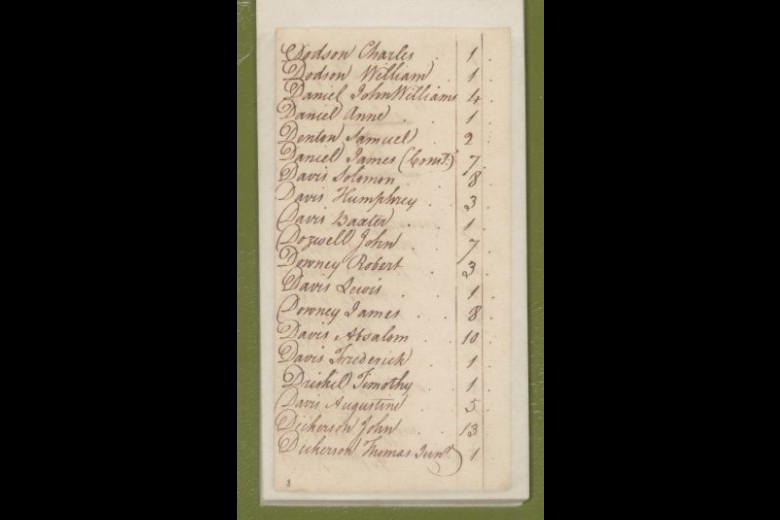 Dodson Charles . 1 .
Dodson William . 1 .
Daniel John Williams 4 .
Daniel Anne . 1
Denton Samuel . 2
Daniel James (Const.) 7
Davis Solomon . 8
Davis Humphrey . 3
Davis Baxter . . 1 .
Dozwell John . . 7
Downey Robert . 3
Davis Lewis . . 1 .
Downey James . . 8 .
Davis Absalom . . 10 .
Davis Frederick . 1 .
Driskel Timothy . 1 .
Davis Augustine . 5 .
Dickerson John . 13
Dickerson Thomas Junr. 1 .